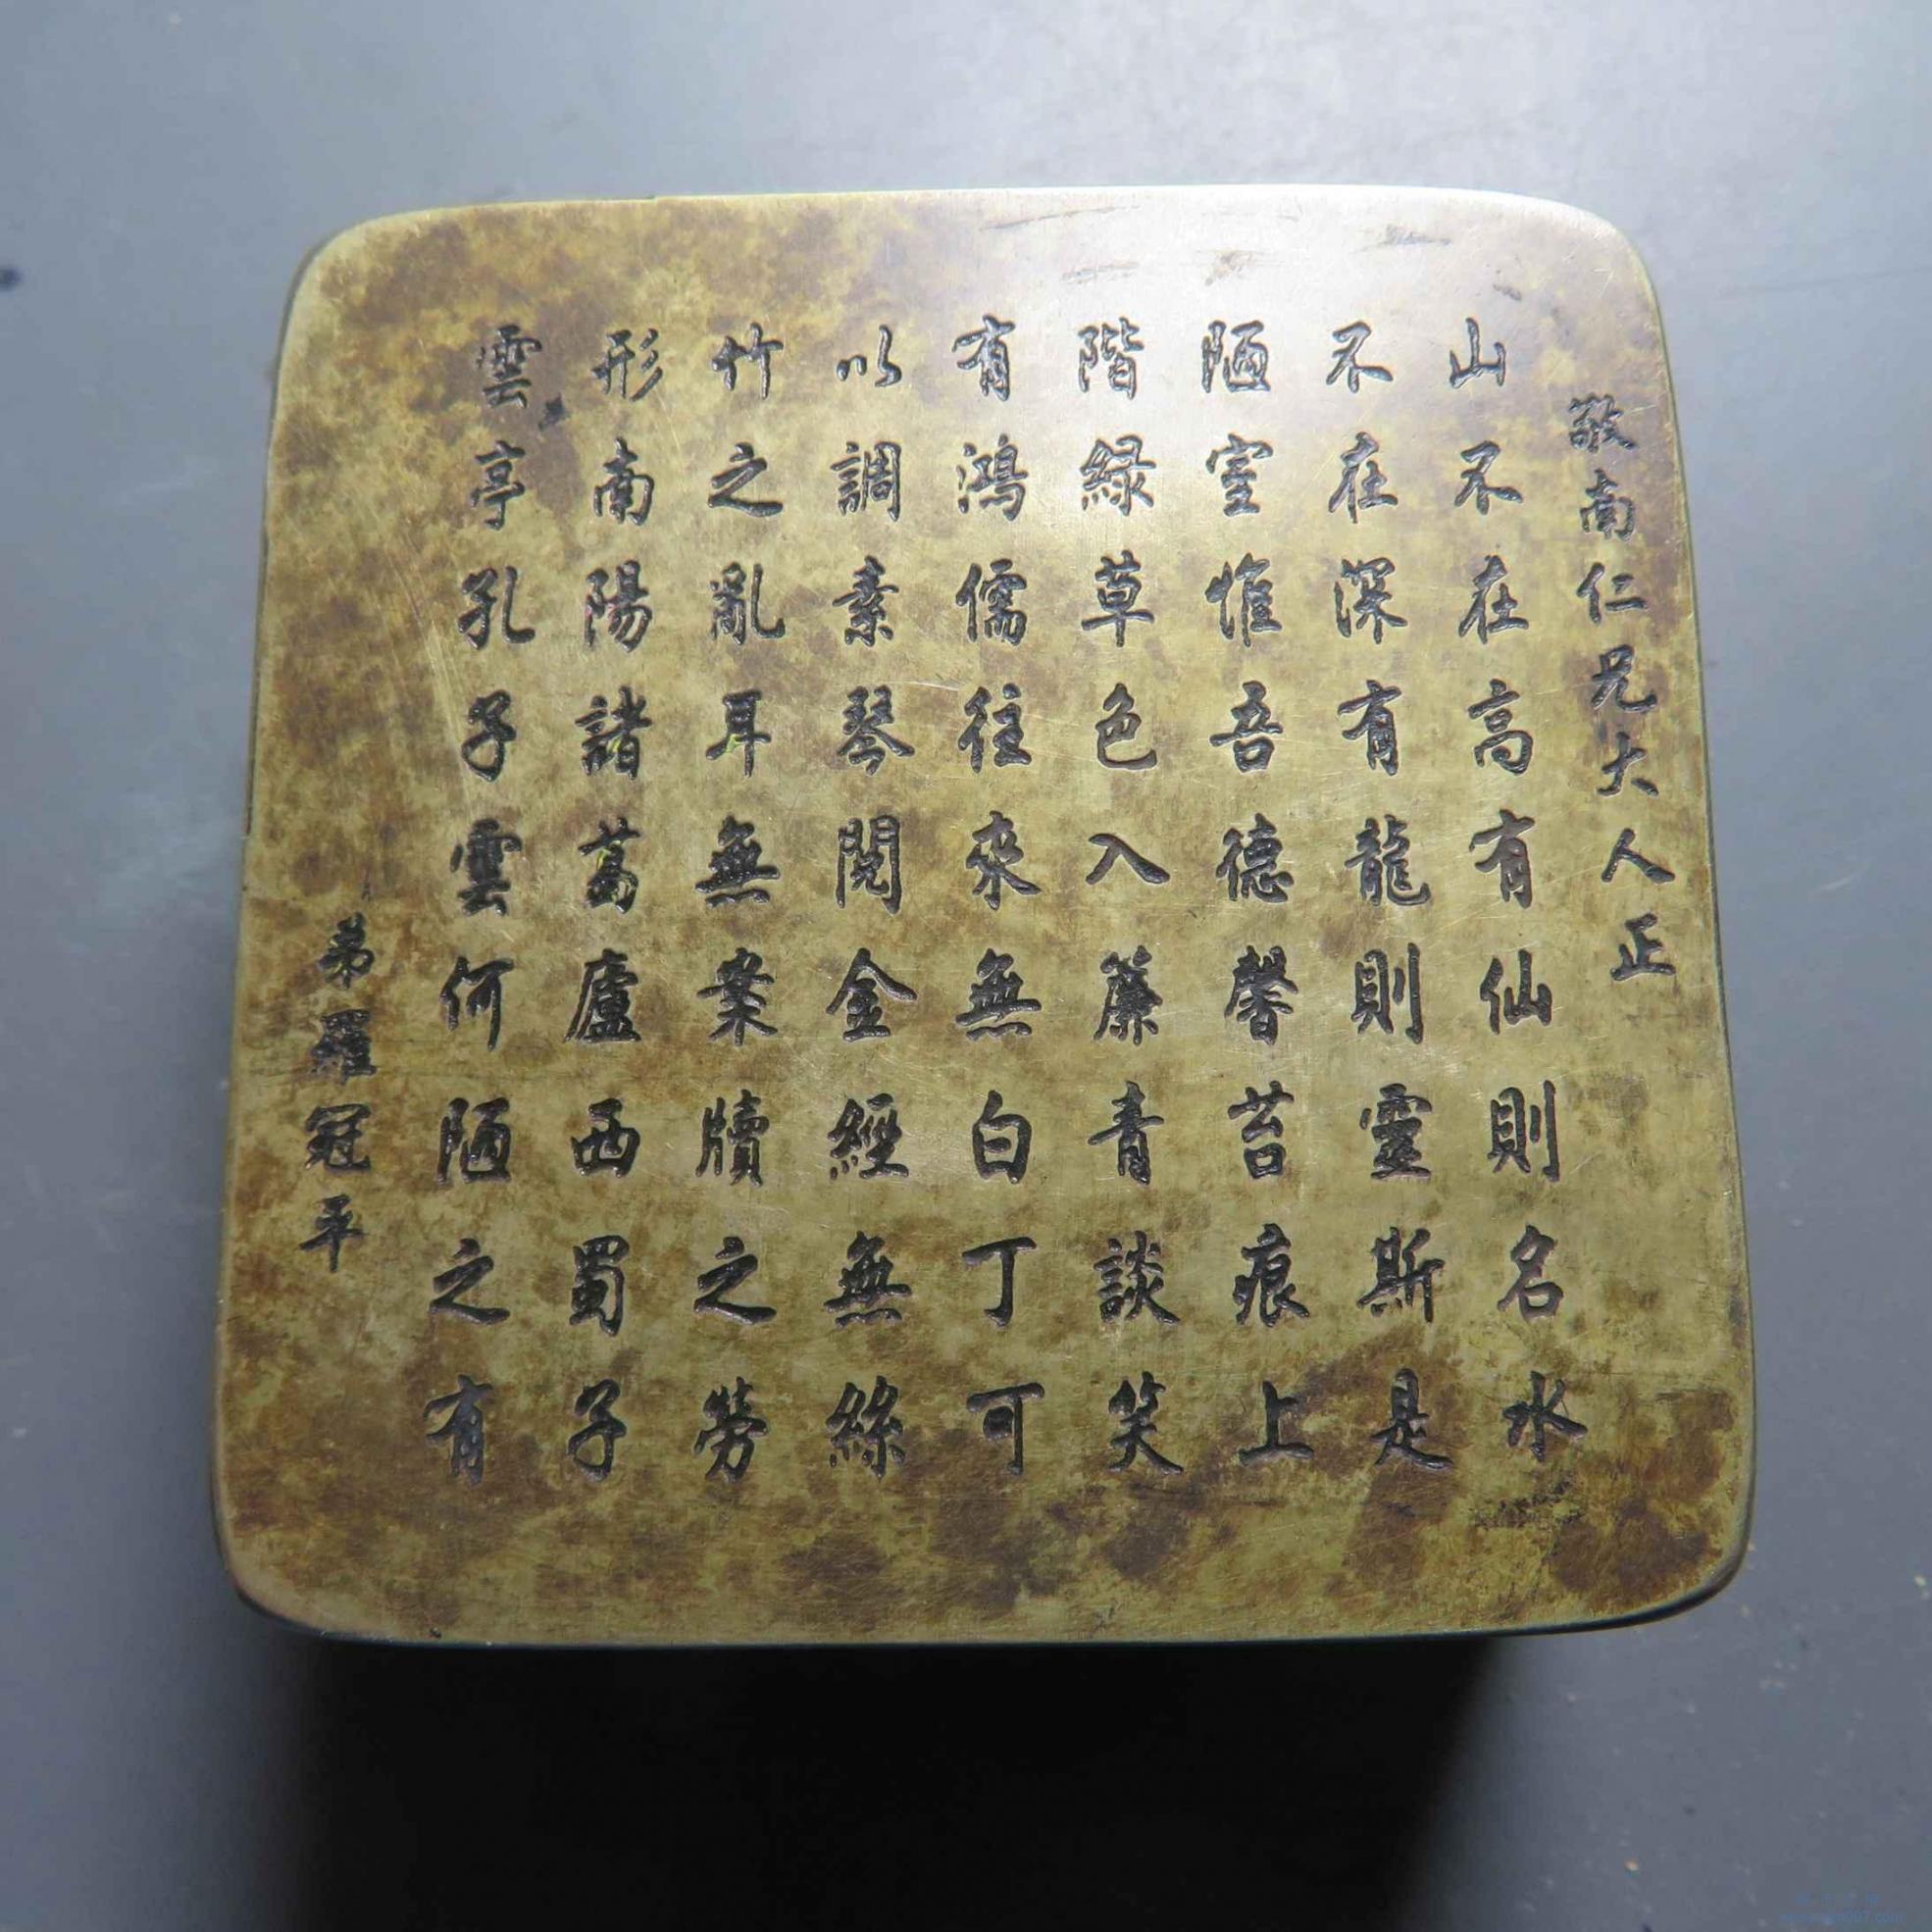 敬南仁兄大人正
山不在高有仙則名水
不在深有龍則靈斯是
陋室惟吾德馨苔痕上
階緑草色入簾青談笑
有鴻儒往來無白丁可
以調素琴閱金經無絲
竹之亂耳無案牘之勞
形南陽諸葛廬西蜀子
雲亭孔子雲何陋之有
弟羅冠平